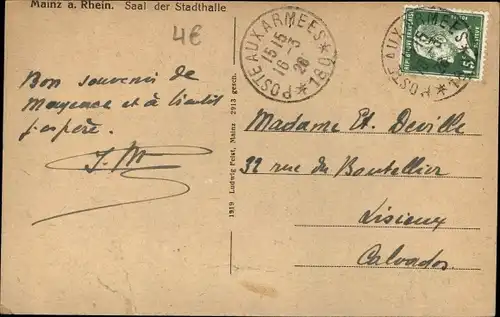 Mainz a. Rhein. Saal der Stadthalle
4€
POSTE AUX ARMEES * 180 *
15 15
16 - 3
26
15
Bon souvenir de
Mayence et à bientôt
j'espère.
J. M
1919 Ludwig Feist, Mainz 2913 gesch.
Madame Et. Deville
32 rue du Bouteiller
Lisieux
Calvados.